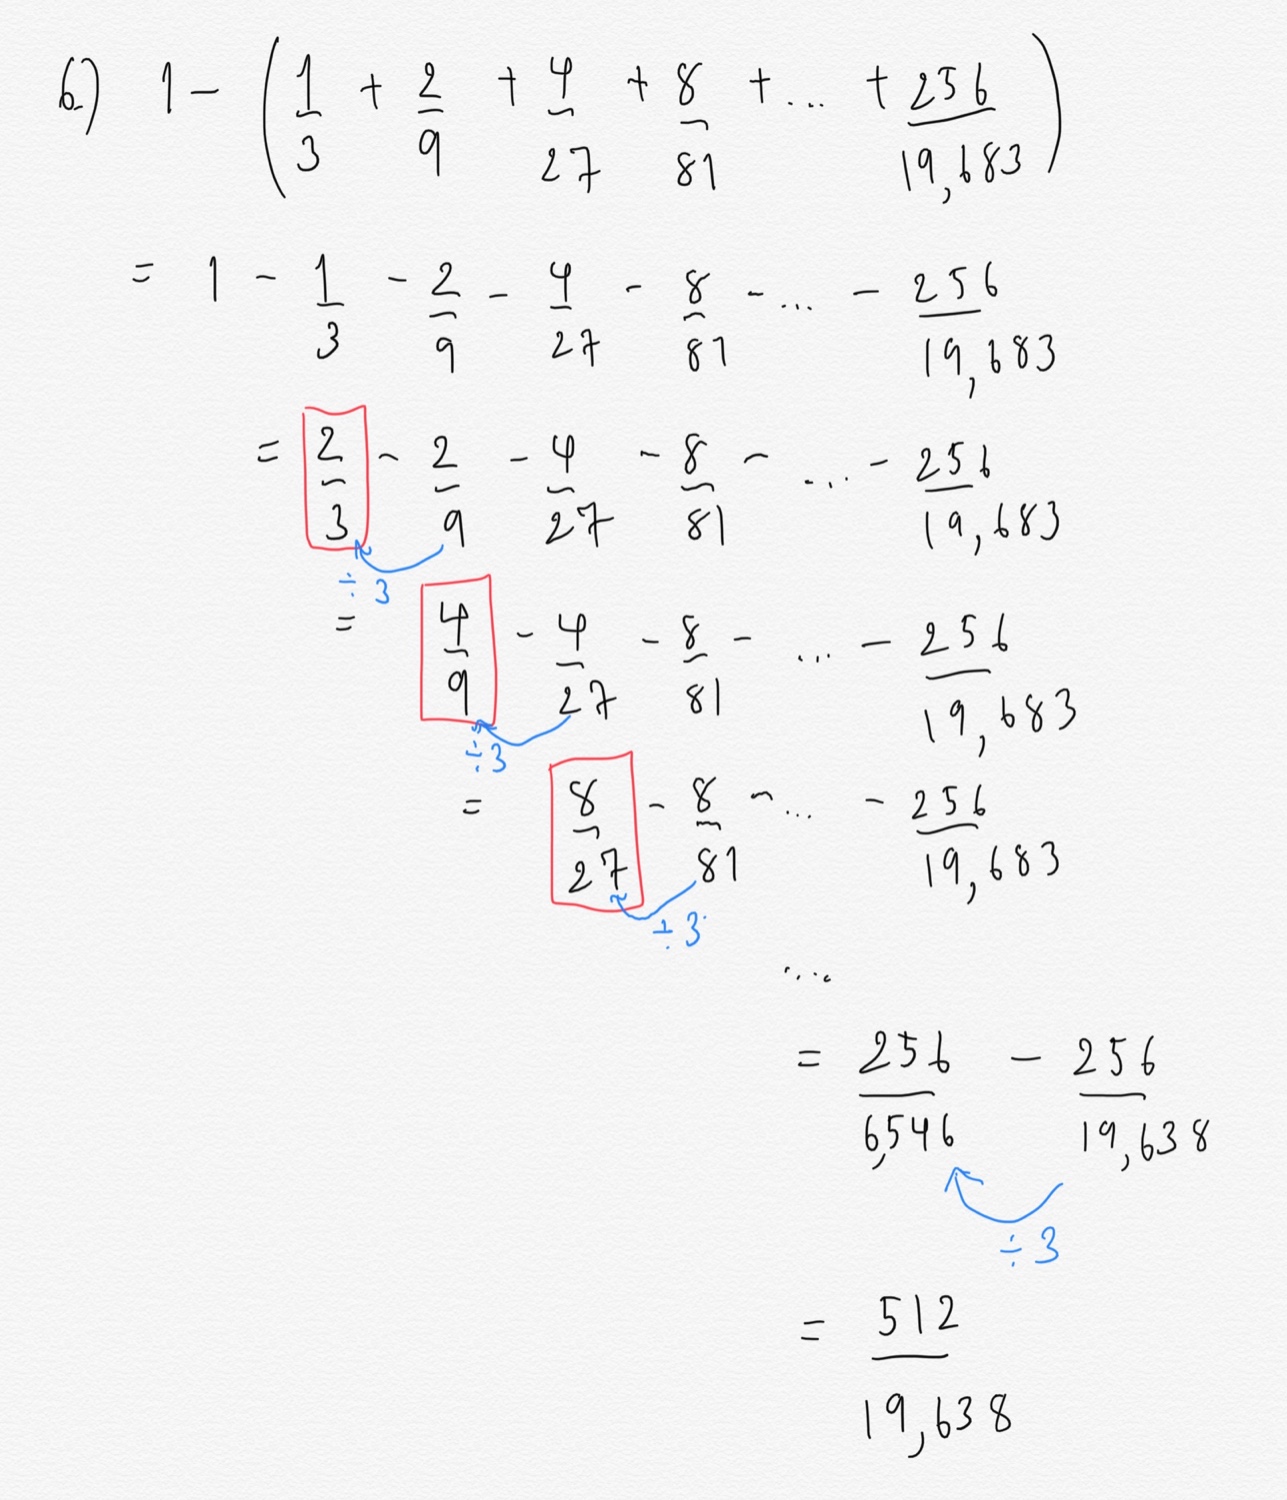 6.) 1 - (1/3 + 2/9 + 4/27 + 8/81 + ... + 256/19,683)
= 1 - 1/3 - 2/9 - 4/27 - 8/81 - ... - 256/19,683
= 2/3 - 2/9 - 4/27 - 8/81 - ... - 256/19,683
÷ 3
= 4/9 - 4/27 - 8/81 - ... - 256/19,683
÷ 3
= 8/27 - 8/81 - ... - 256/19,683
÷ 3
....
= 256/6,546 - 256/19,638
÷ 3
= 512/19,638